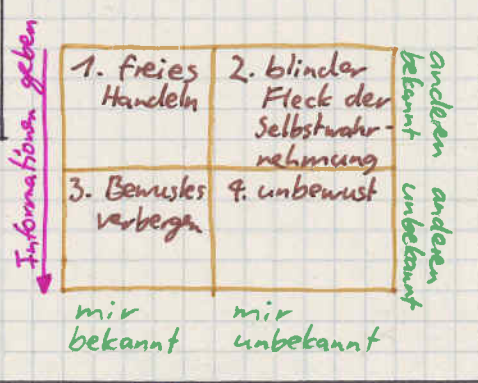 Informationen geben
1. freies
Handeln
2. blinder
Fleck der
Selbstwahr-
nehmung
3. Bewustes
verbergen
4. unbewust
anderen
bekannt
anderen
unbekannt
mir
bekannt
mir
unbekannt